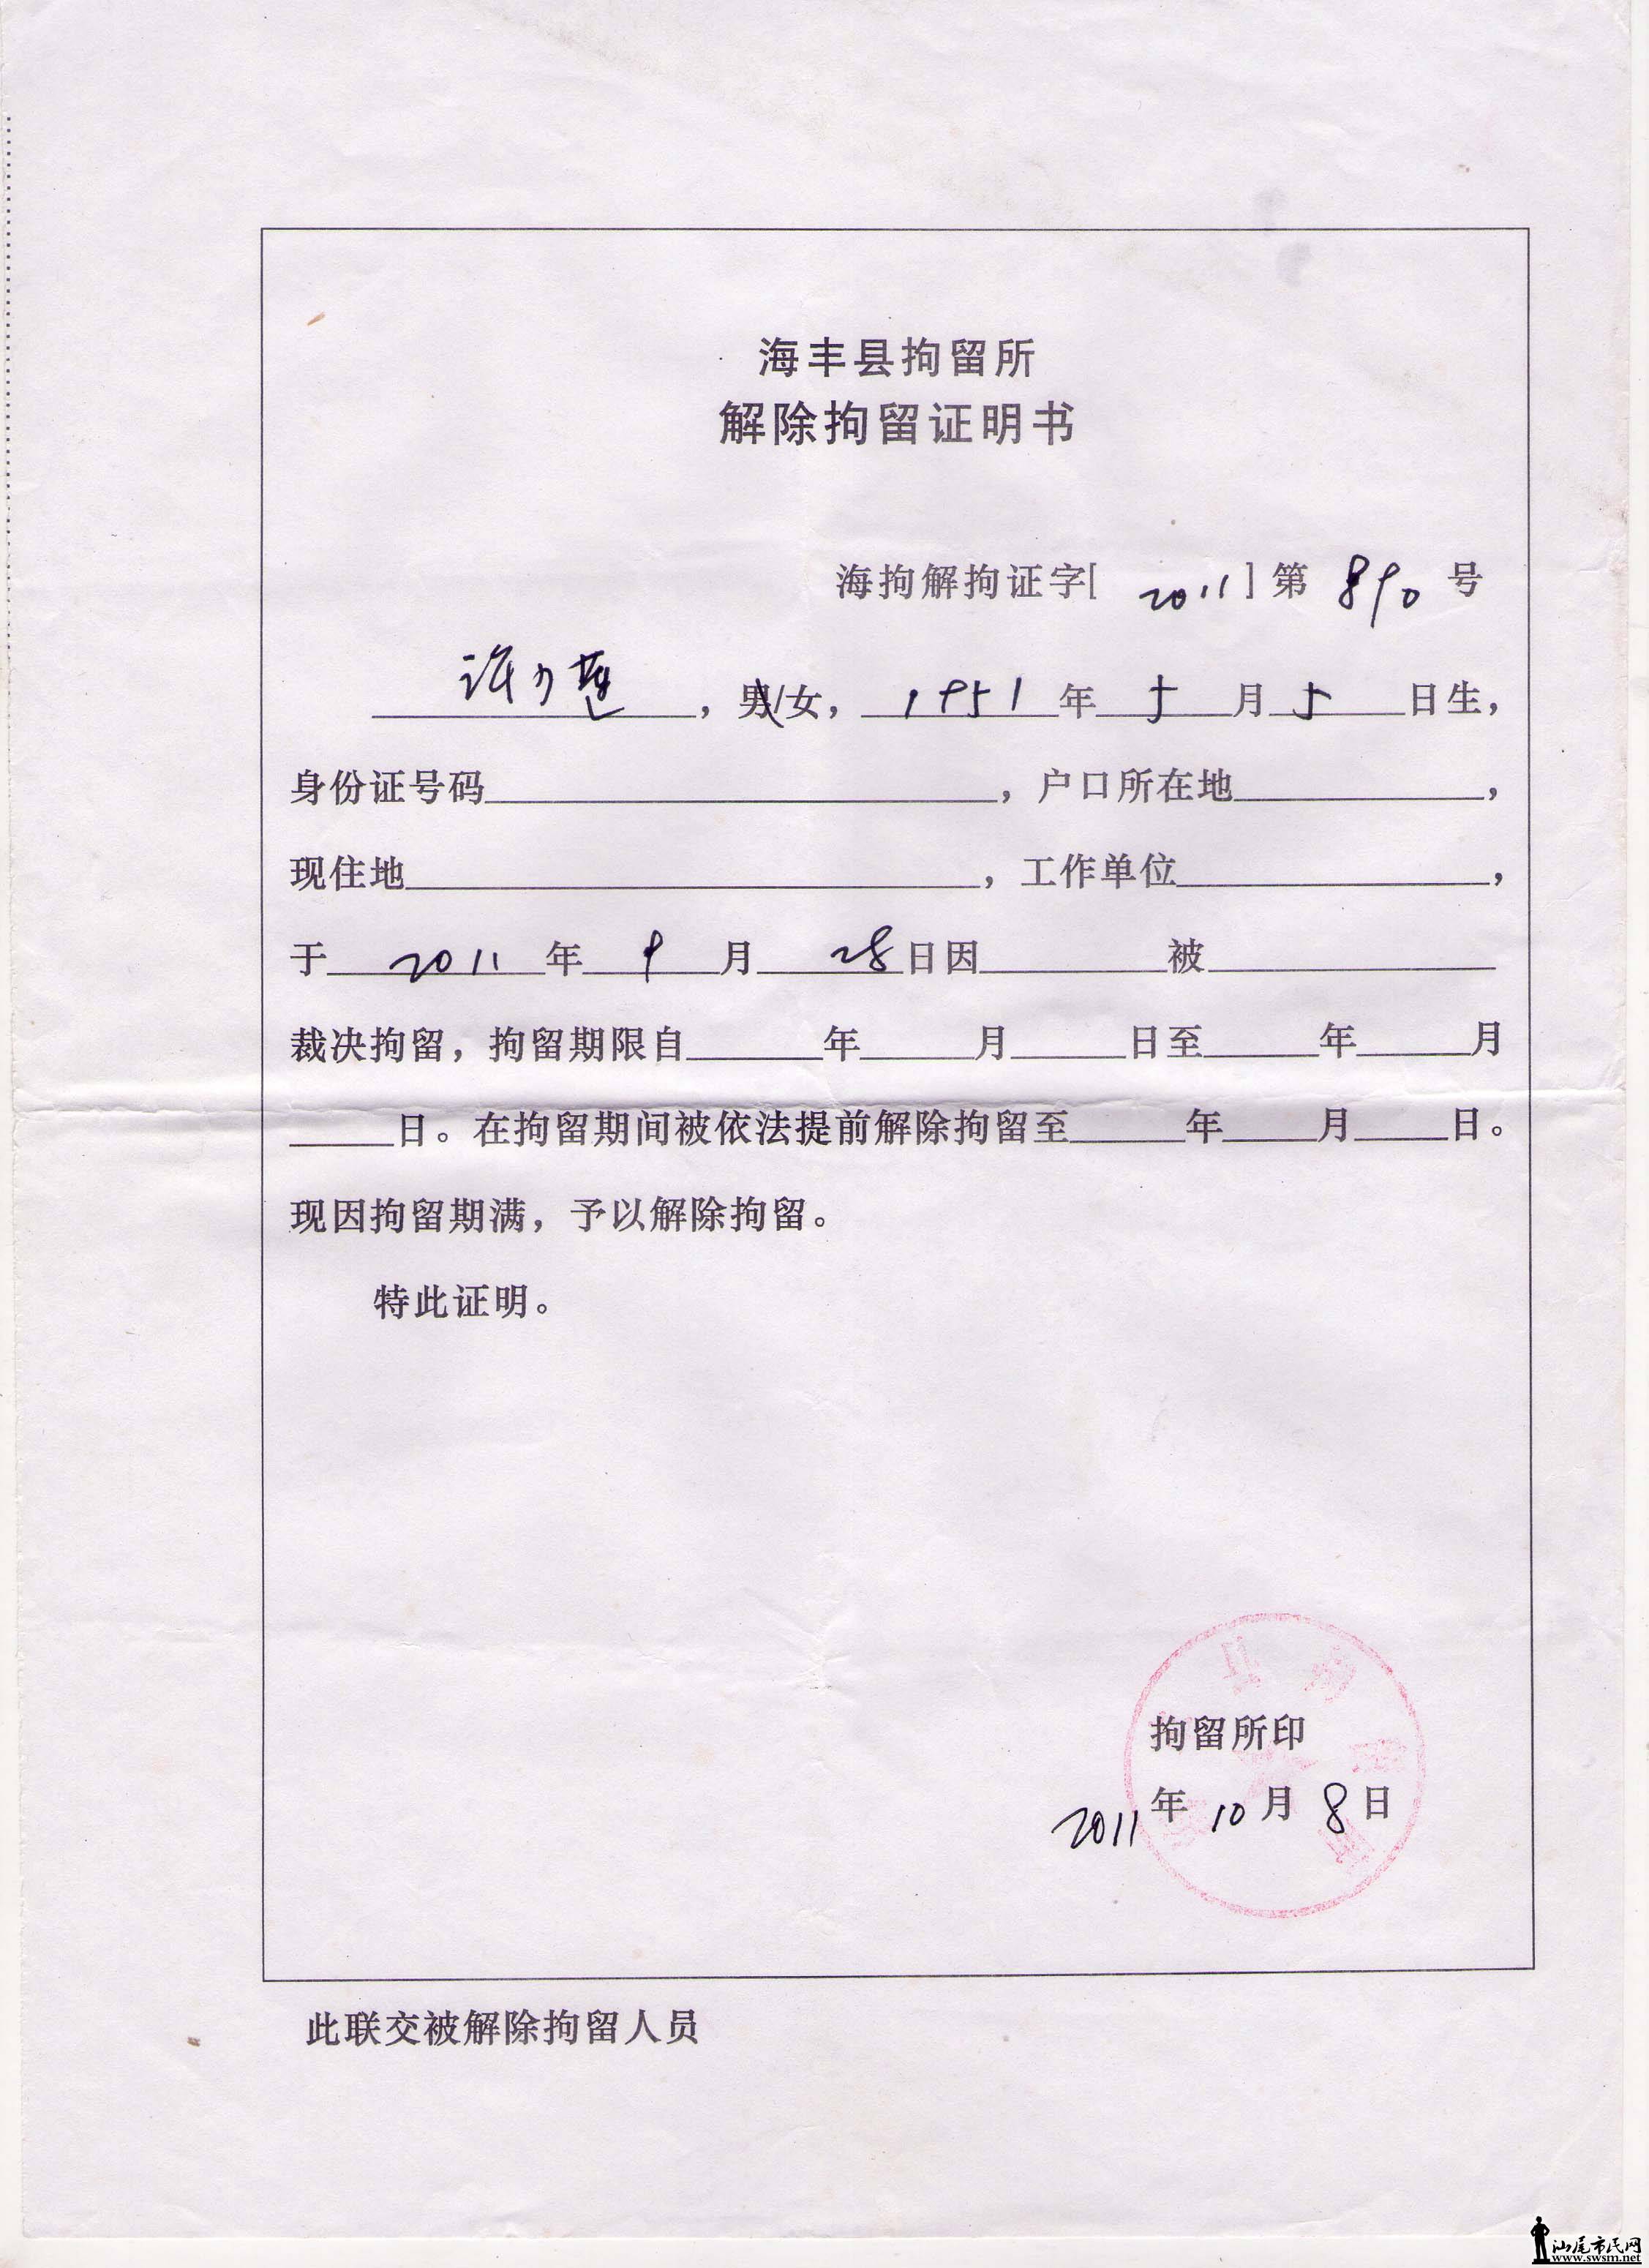 海丰县拘留所
解除拘留证明书
海拘解拘证字[ 2011 ] 第 890 号
许 ，男/女，1951年5月5日生，
身份证号码____，户口所在地____，
现住地____，工作单位____，
于2011年9月28日因____被____
裁决拘留，拘留期限自____年____月____日至____年____月
____日。在拘留期间被依法提前解除拘留至____年____月____日。
现因拘留期满，予以解除拘留。
特此证明。
拘留所印
2011年10月8日
此联交被解除拘留人员
汕尾市民网
www.swsm.net